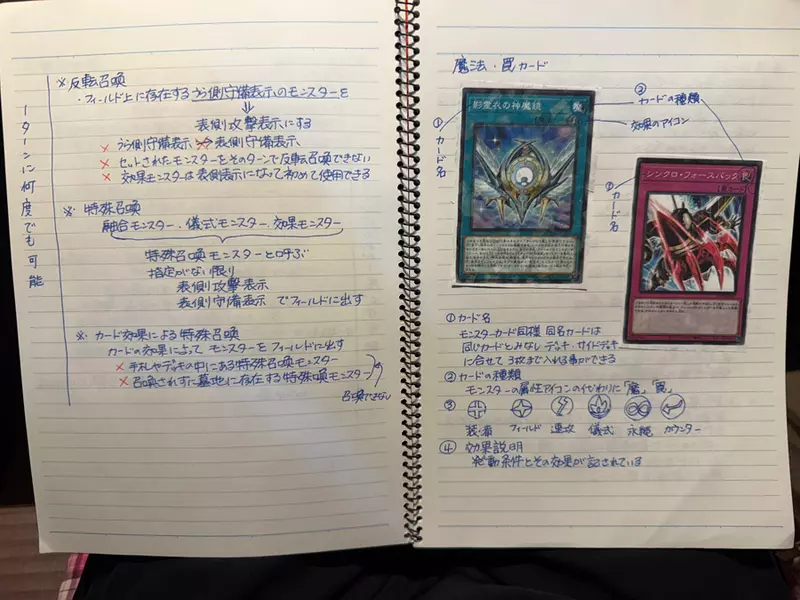 ※反転召喚
・フィールド上に存在するうら側守備表示のモンスターを
⇓
表側攻撃表示にする
× うら側守備表示 ⇒ 表側守備表示
× セットされたモンスターをそのターンで反転召喚できない
× 効果モンスターは表側表示になって初めて使用できる
1ターンに何度でも可能
※ 特殊召喚
融合モンスター、儀式モンスター、効果モンスター
特殊召喚モンスターと呼ぶ
指定がない限り
表側攻撃表示
表側守備表示 でフィールドに出す
※ カード効果による特殊召喚
カードの効果によって モンスターをフィールドに出す
× 手札やデッキの中にある特殊召喚モンスター
× 召喚されずに墓地に存在する特殊召喚モンスター
召喚できない
魔法・罠カード
② カードの種類
効果のアイコン
① カード名
影霊衣の神魔鏡
① カード名
シンクロ・フォースバック
① カード名
モンスターカード同様 同名カードは
同じカードとみなし デッキ・サイドデッキ
に合せて 3枚まで入れる事ができる
② カードの種類
モンスターの属性アイコンの代わりに「魔」「罠」
③
装備 フィールド 速攻 儀式 永続 カウンター
④ 効果説明
発動条件とその効果が記されている